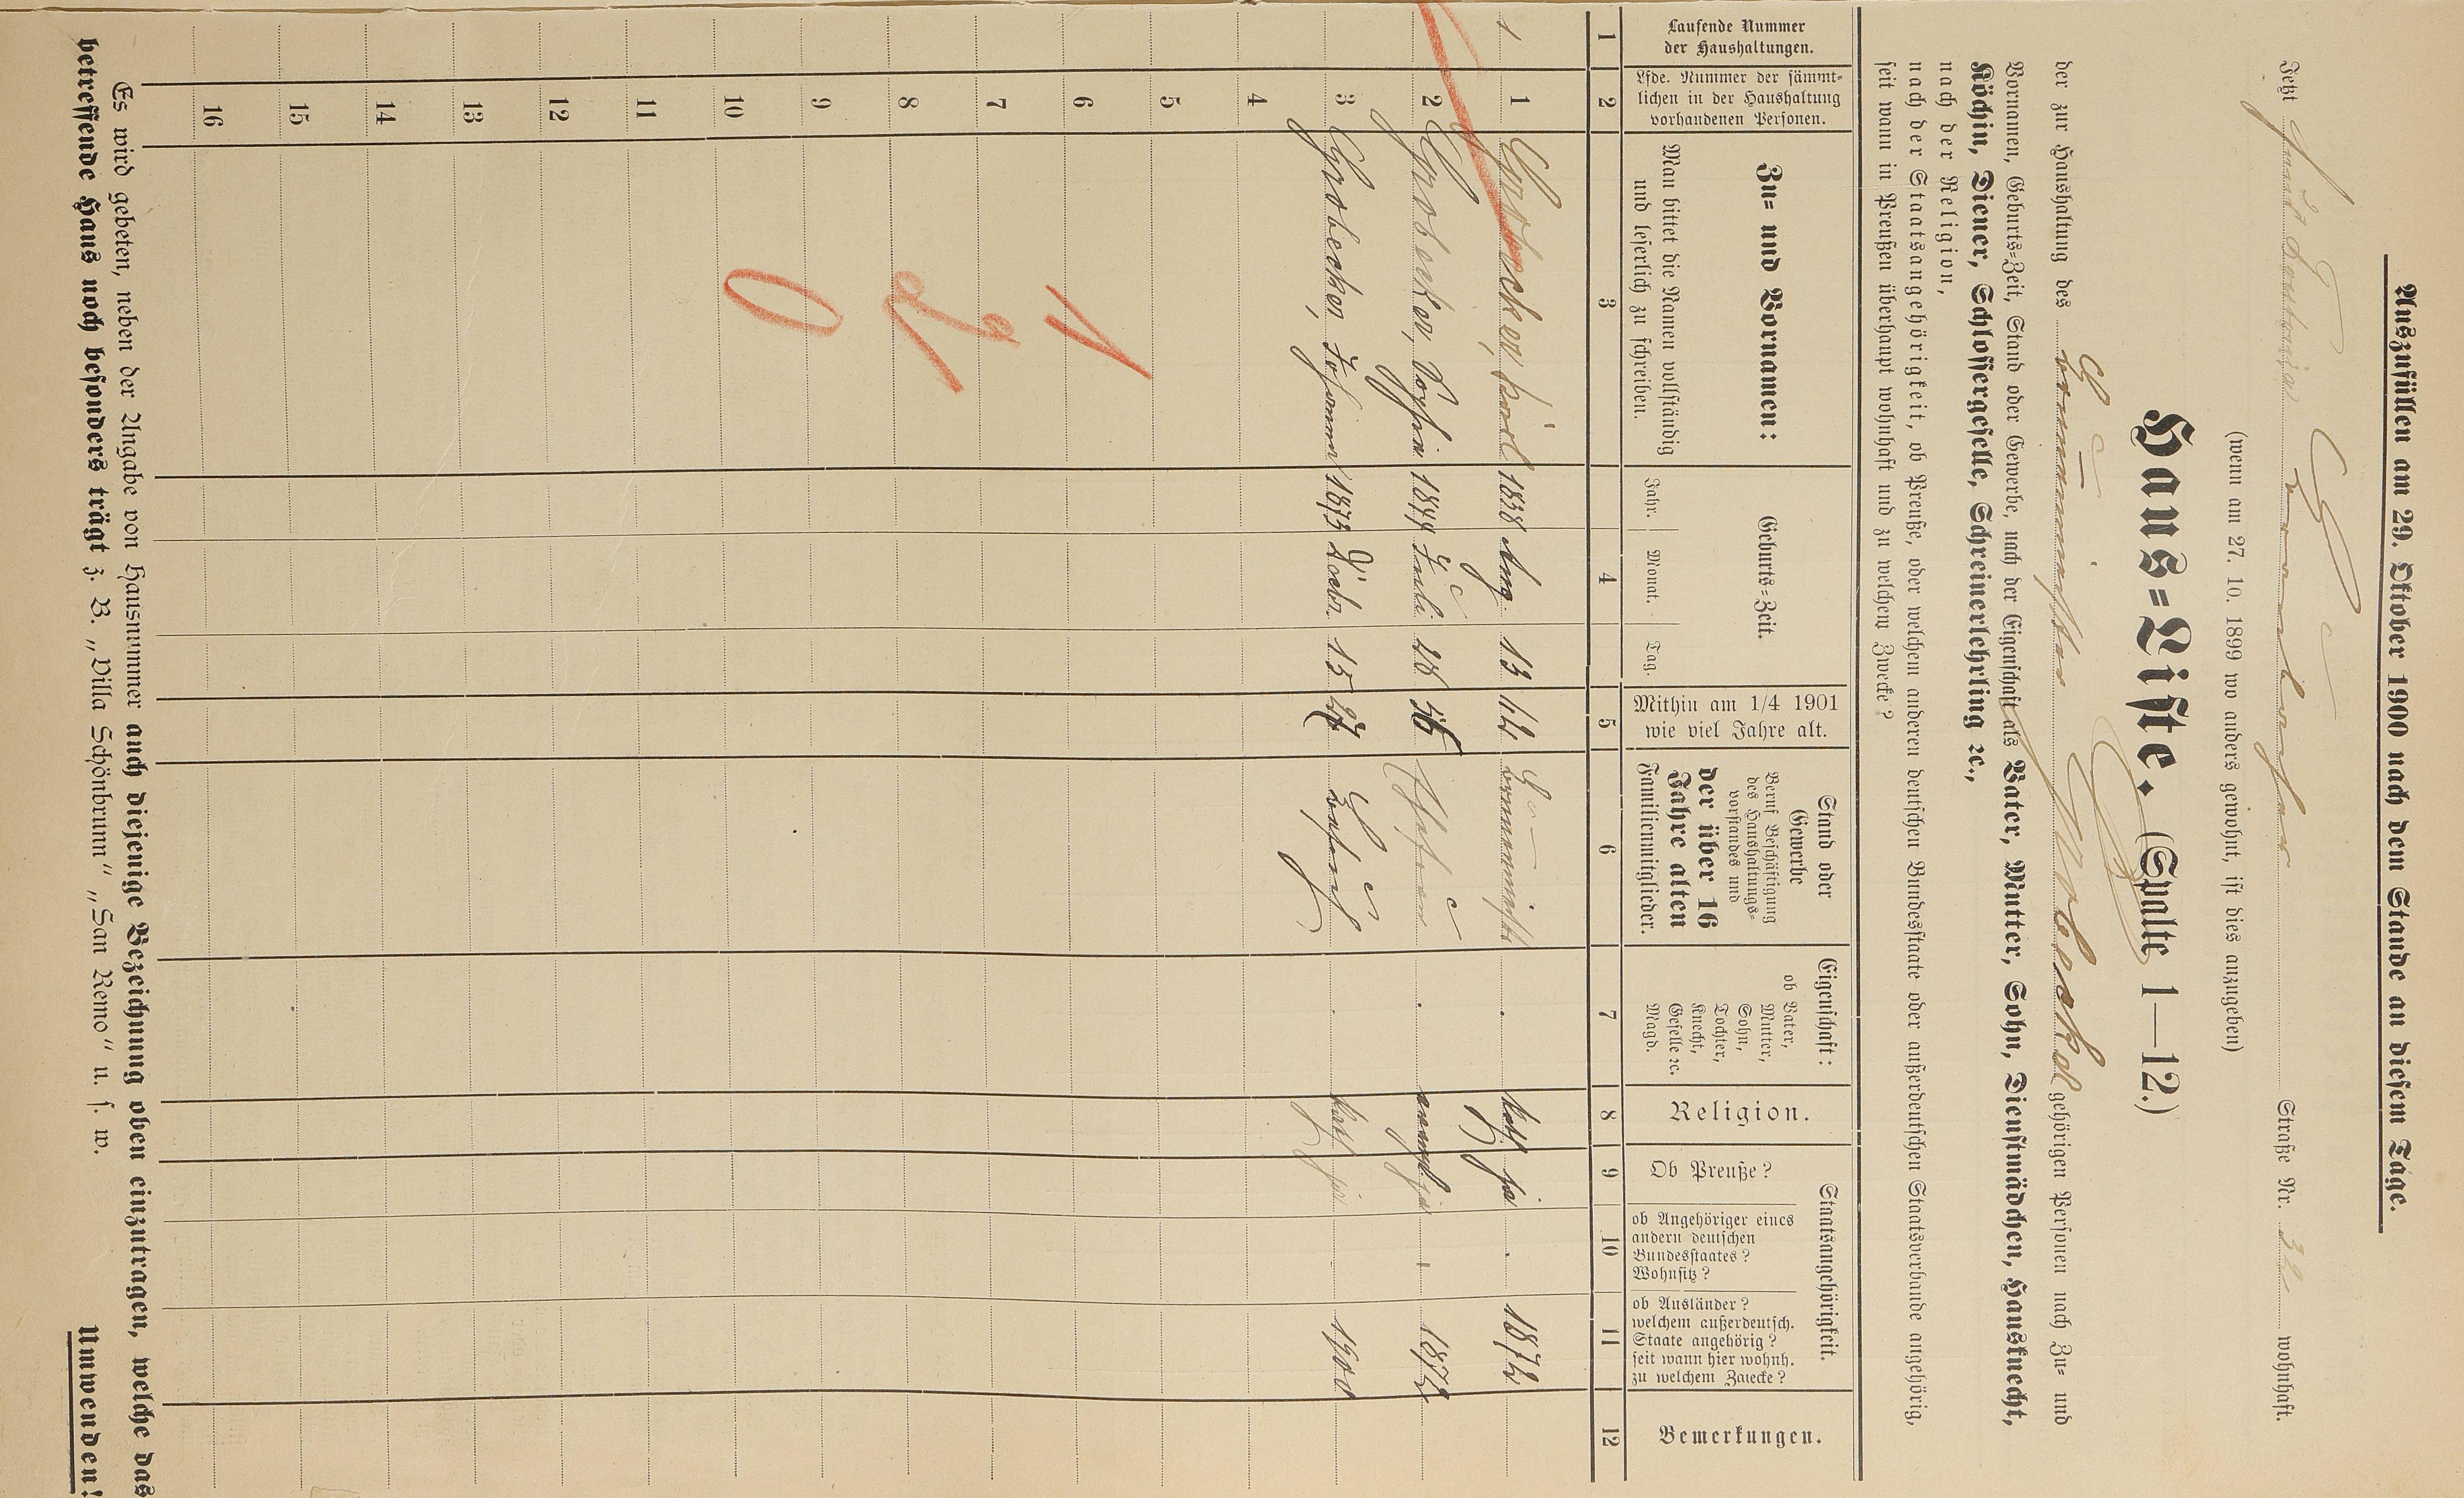 Auszufüllen am 29. Oktober 1900 nach dem Stande an diesem Tage.
Jetzt Straße Nr. 32 wohnhaft.
(wenn am 27. 10. 1899 wo anders gewohnt, ist dies anzugeben)
Haus=Liste. (Spalte 1—12.)
der zur Haushaltung des gehörigen Personen nach Zu= und
Vornamen, Geburts=Zeit, Stand oder Gewerbe, nach der Eigenschaft als Vater, Mutter, Sohn, Dienstmädchen, Hausknecht,
Köchin, Diener, Schlossergeselle, Schreinerlehrling ꝛc.,
nach der Religion,
nach der Staatsangehörigkeit, ob Preuße, oder welchem anderen deutschen Bundesstaate oder außerdeutschen Staatsverbande angehörig,
seit wann in Preußen überhaupt wohnhaft und zu welchem Zwecke?
Laufende Nummer
der Haushaltungen.
Lfde. Nummer der sämmt-
lichen in der Haushaltung
vorhandenen Personen.
Zu= und Vornamen:
Man bittet die Namen vollständig
und leserlich zu schreiben.
Geburts=Zeit.
Jahr. Monat. Tag.
Mithin am 1/4 1901
wie viel Jahre alt.
Stand oder
Gewerbe
Beruf Beschäftigung
des Haushaltungs=
vorstandes und
der über 16
Jahre alten
Familienmitglieder.
Eigenschaft:
ob Vater,
Mutter,
Sohn,
Tochter,
Knecht,
Geselle ꝛc.
Magd.
Religion.
Staatsangehörigkeit.
Ob Preuße?
ob Angehöriger eines
andern deutschen
Bundesstaates?
Wohnsitz?
ob Ausländer?
welchem außerdeutsch.
Staate angehörig?
seit wann hier wohnh.
zu welchem Zwecke?
Bemerkungen.
1 2 3 4 5 6 7 8 9 10 11 12
1 1 Grobecker, Karl 1838 Aug. 13 62 kath ja 1872
2 Grobecker, Sophia 1844 Juli 28 56 evangl ja 1872
3 Grobecker, Johanna 1873 Dec. 15 27 kath ja 1900
4
5
6
7
8
9
10
11
12
13
14
15
16
1
2
0
Es wird gebeten, neben der Angabe von Hausnummer auch diejenige Bezeichnung oben einzutragen, welche das
betreffende Haus noch besonders trägt z. B. „Villa Schönbrunn“ „San Remo“ u. s. w.
Umwenden!